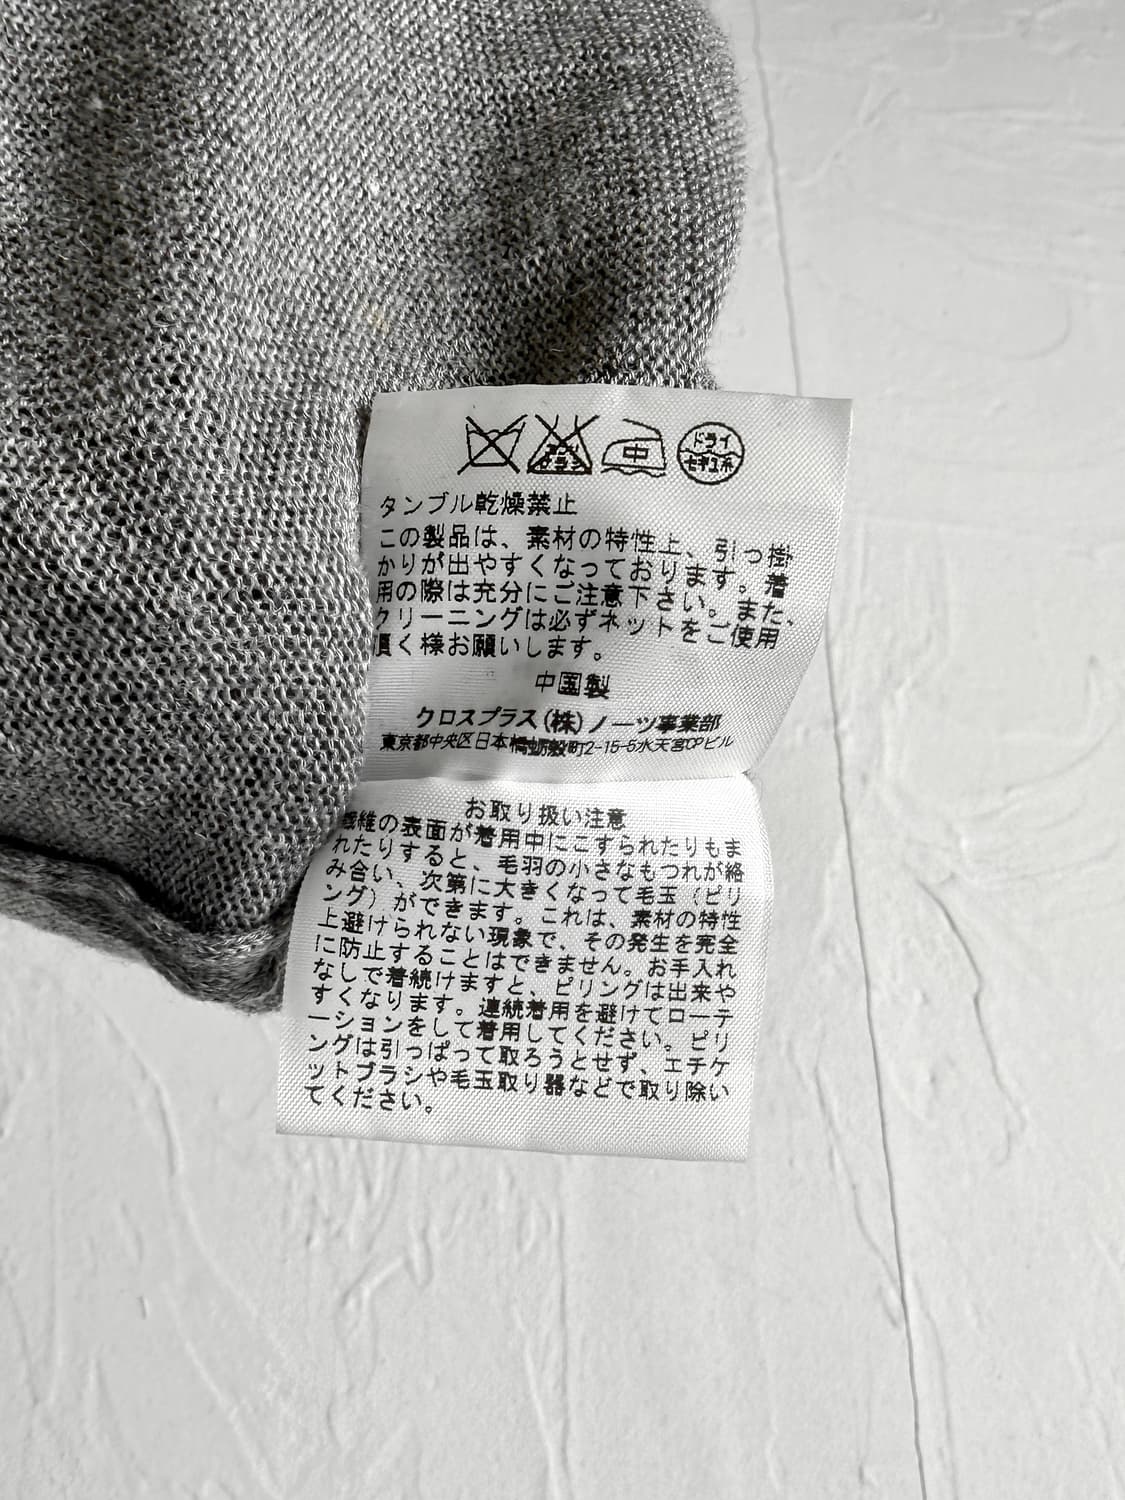 エンソ
サラシ
中
ドライ
セキユ系
タンブル乾燥禁止
この製品は、素材の特性上、引っ掛
かりが出やすくなっております。着
用の際は充分にご注意下さい。また、
クリーニングは必ずネットをご使用
頂く様お願いします。
中国製
クロスプラス(株)ノーツ事業部
東京都中央区日本橋蛎殻町2-15-5水天宮CPビル
お取り扱い注意
繊維の表面が着用中にこすられたりもま
れたりすると、毛羽の小さなもつれが絡
み合い、次第に大きくなって毛玉(ピリ
ング)ができます。これは、素材の特性
上避けられない現象で、その発生を完全
に防止することはできません。お手入れ
なしで着続けますと、ピリングは出来や
すくなります。連続着用を避けてローテ
ーションをして着用してください。ピリ
ングは引っぱって取ろうとせず、エチケ
ットブラシや毛玉取り器などで取り除い
てください。